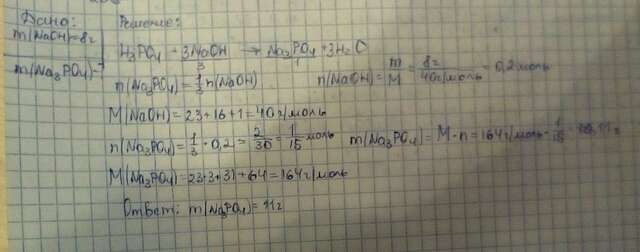 Дано:
m(NaOH)=8г
m(Na₃PO₄)-?
Решение:
H₃PO₄ + 3NaOH → Na₃PO₄ + 3H₂O
3 1
n(Na₃PO₄)=1/3 n(NaOH) n(NaOH)=m/M=8г/40г/моль=0,2моль
M(NaOH)=23+16+1=40г/моль
n(Na₃PO₄)=1/3·0,2=2/30=1/15моль m(Na₃PO₄)=M·n=164г/моль·1/15 11г
M(Na₃PO₄)=23·3+31+64=164г/моль
Ответ: m(Na₃PO₄)=11г